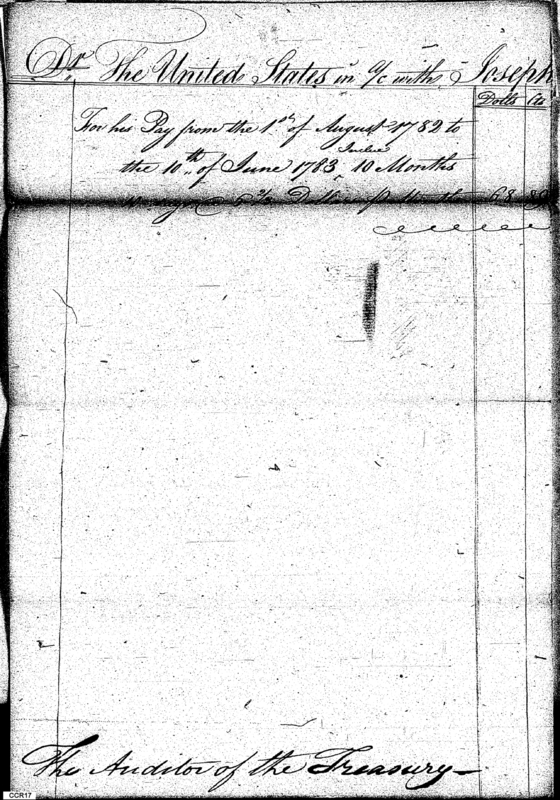 Dr The United States in a/c with Joseph
Dolls Cts
For his Pay from the 1st of August 1782 to
Inclue
the 10th of June 1783 10 Months
10 days @ 6 2/3 Dollars pr Month 68
The Auditor of the Treasury
CCR17